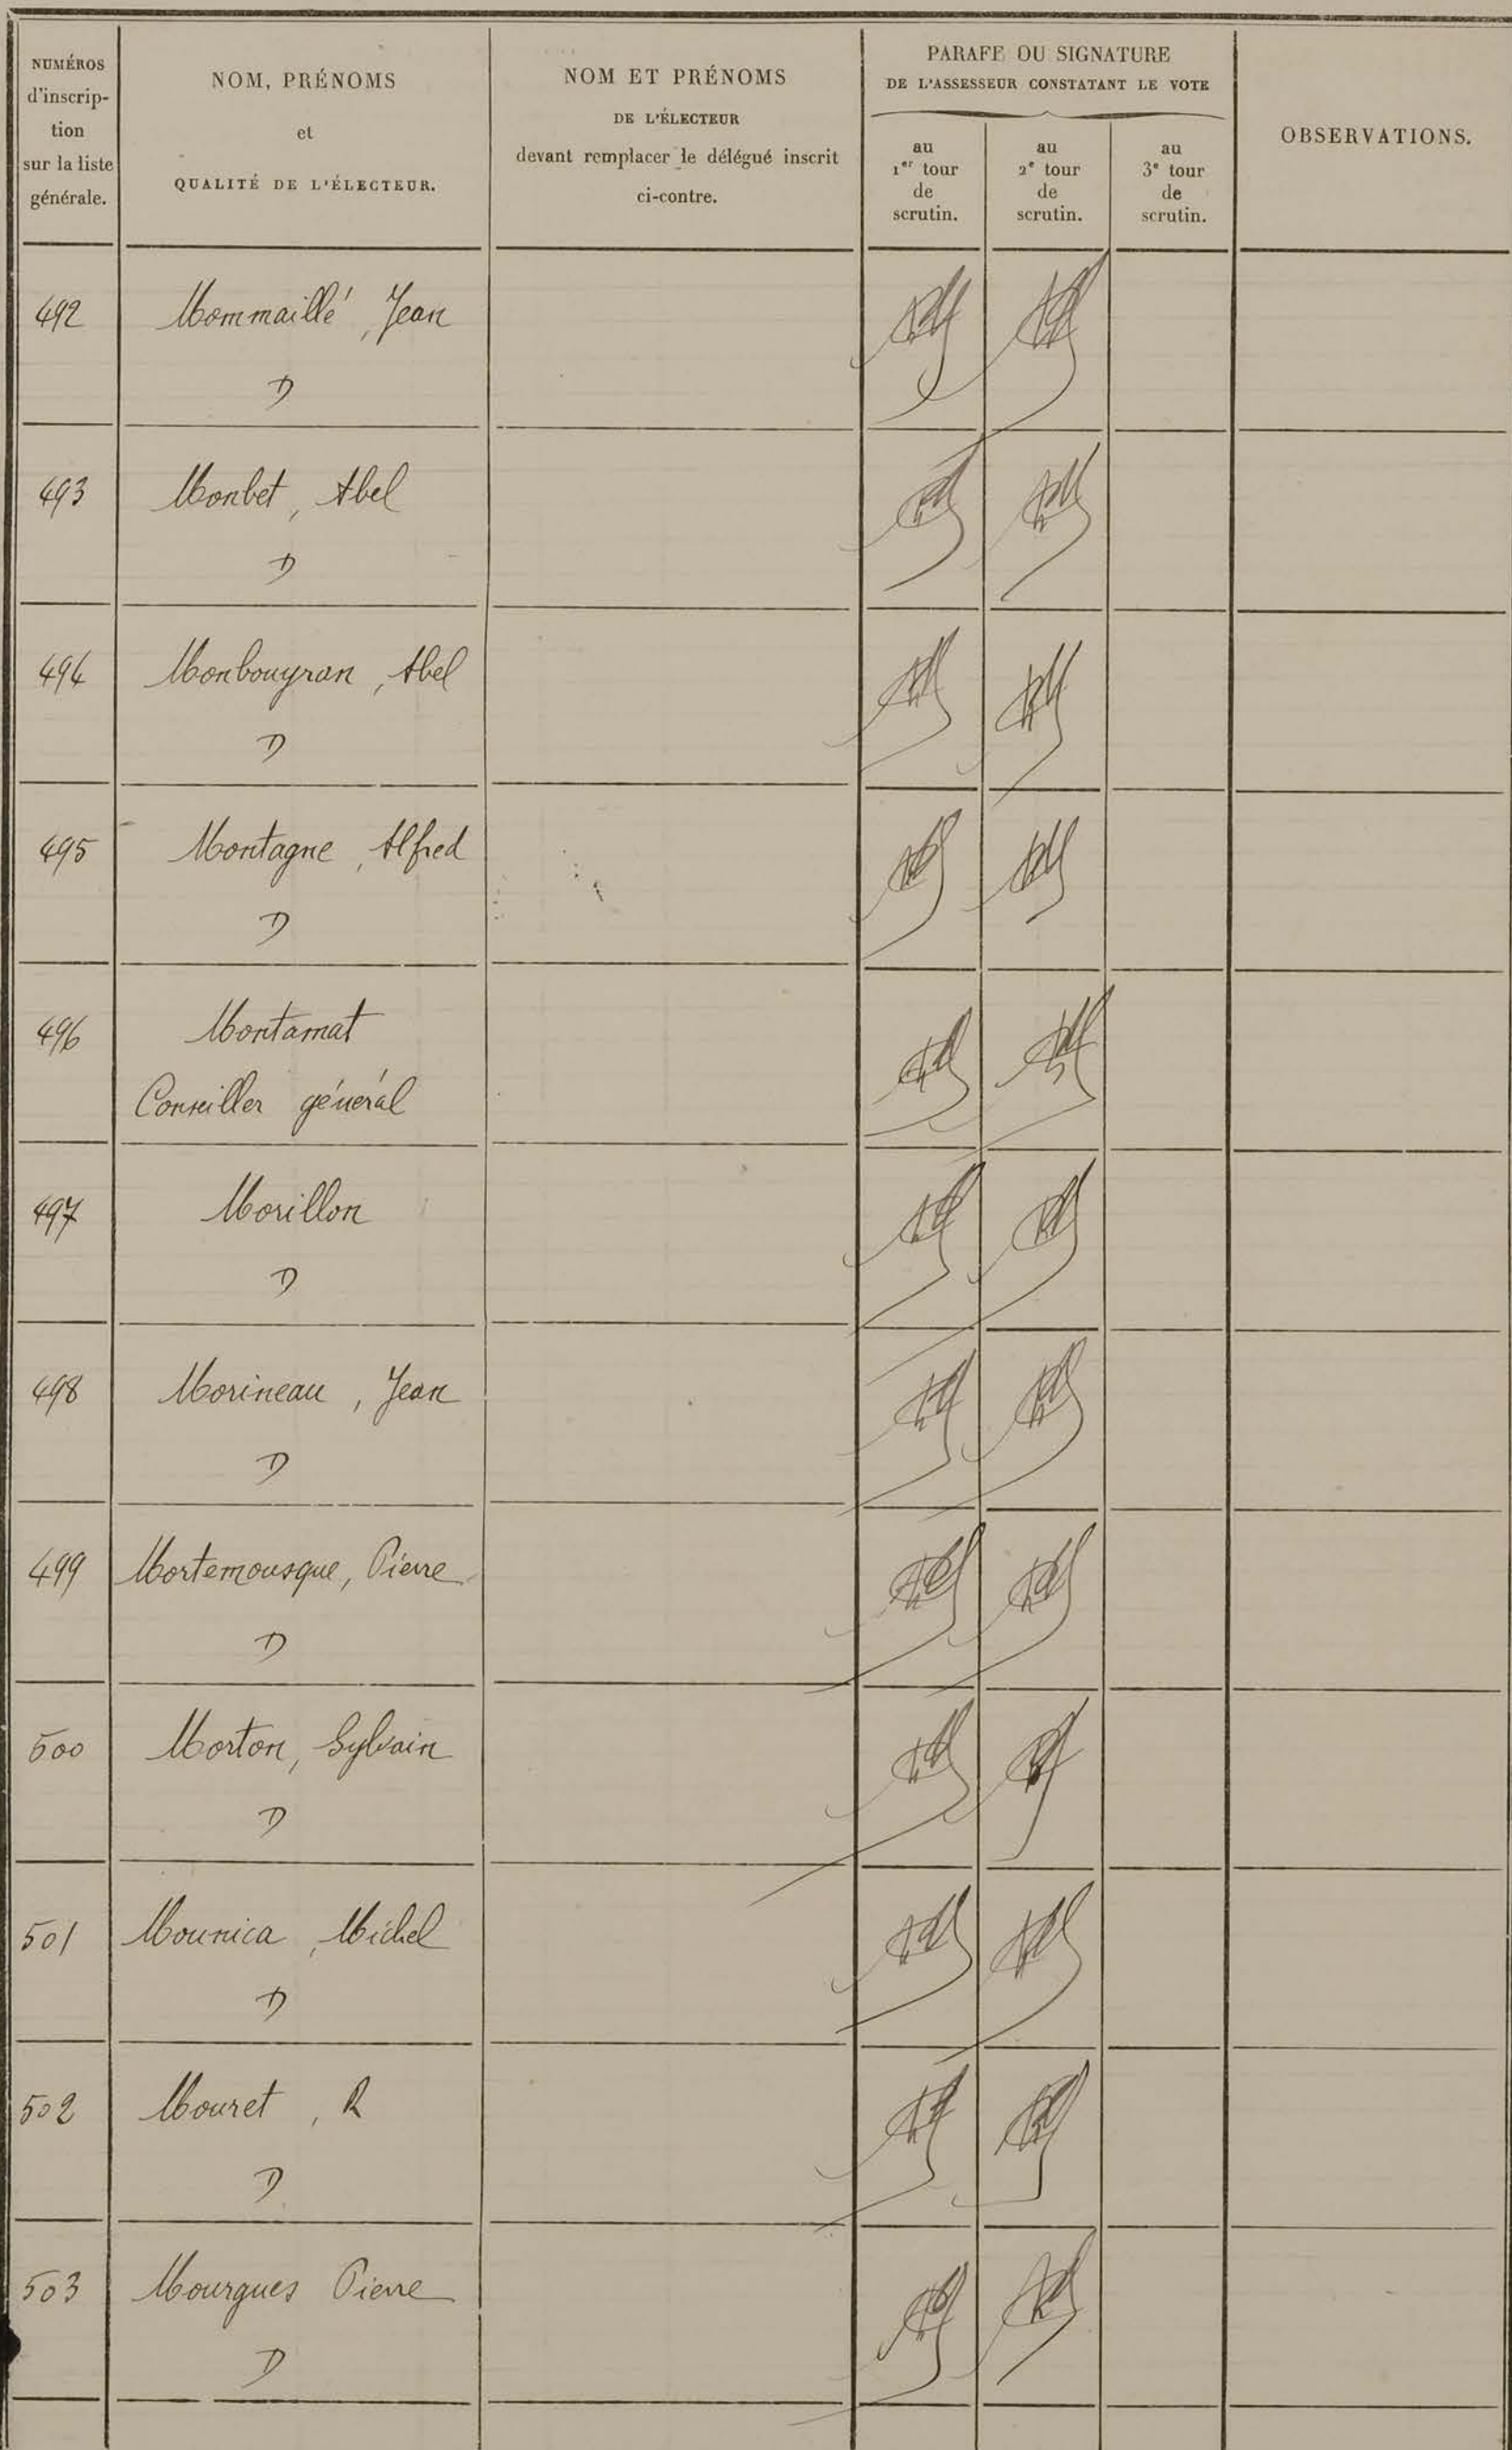 NUMÉROS
d'inscrip-
tion
sur la liste
générale.
NOM, PRÉNOMS
et
QUALITÉ DE L'ÉLECTEUR.
NOM ET PRÉNOMS
DE L'ÉLECTEUR
devant remplacer le délégué inscrit
ci-contre.
PARAFE OU SIGNATURE
DE L'ASSESSEUR CONSTATANT LE VOTE
au
1er tour
de
scrutin.
au
2e tour
de
scrutin.
au
3e tour
de
scrutin.
OBSERVATIONS.
492 Mommaillé, Jean
D
493 Monbet, Abel
D
494 Monbouyran, Abel
D
495 Montagne, Alfred
D
496 Montamat
Conseiller général
497 Morillon
D
498 Morineau, Jean
D
499 Mortemousque, Pierre
D
500 Morton, Sylvain
D
501 Mounica, Michel
D
502 Mouret, R
D
503 Mourgues Pierre
D